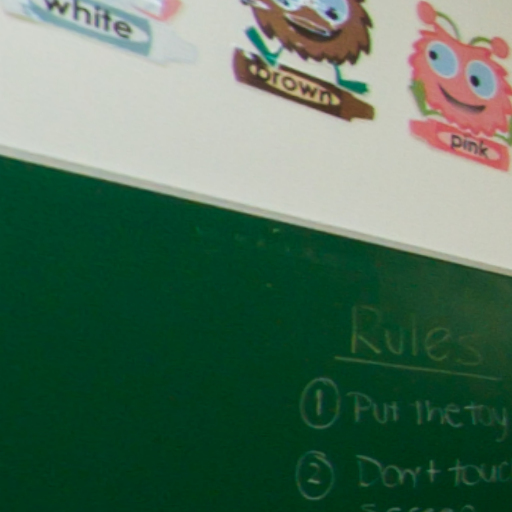 white
brown
pink
Rules
1 Put the toy
2 Don't touc